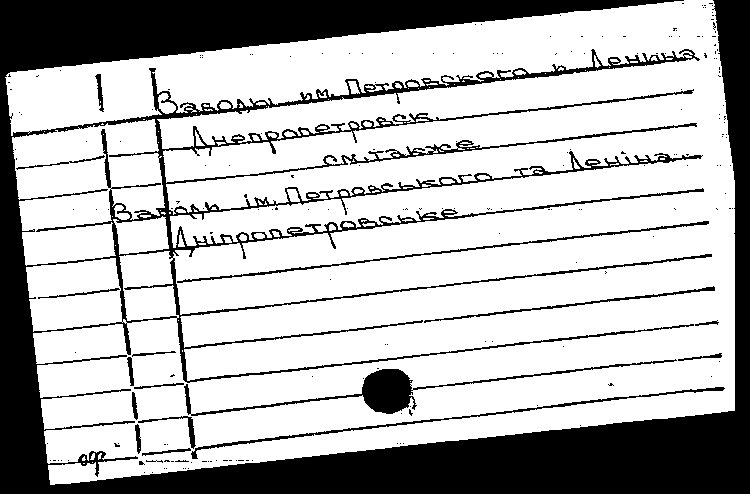 Заводы им. Петровского и Ленина.
Днепропетровск.
см. также
Заводи ім. Петровського та Леніна.
Дніпропетровське.